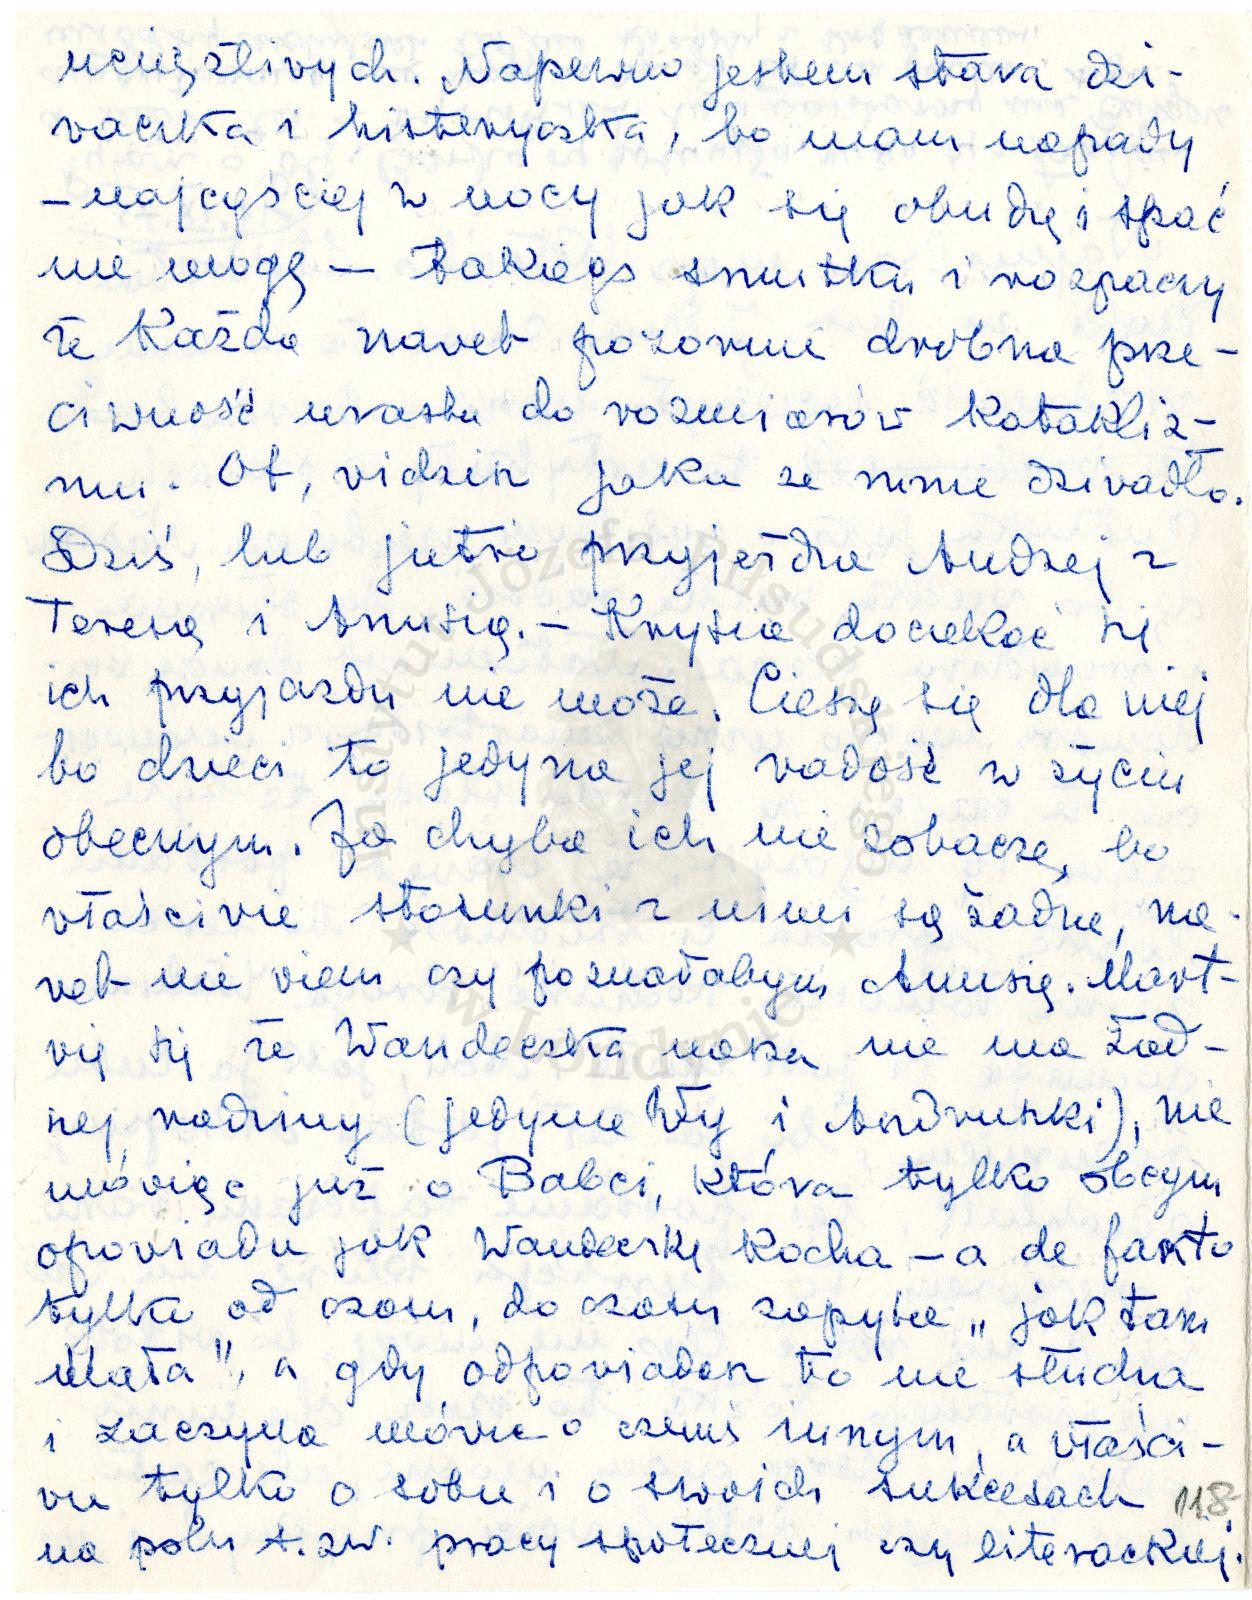 uciążliwych. Napewno jestem stara dzi-
vaczka i histeryczka, bo mam napady
– najczęściej w nocy jak się obudzę i spać
nie mogę – takiego smutku i rozpaczy
że każda navet pozornie drobna prze-
ciwność urasta do rozmiarów katakliz-
mu. Ot, vidzisz jakie ze mnie dzivadło.
Dziś, lub jutro przyjeżdża Andrzej z
Teresą i Anusią. – Krysia doczekać się
ich przyjazdu nie może. Cieszę się dla niej
bo dzieci to jedyna jej radość w życiu
obecnym. Ja chyba ich nie zobaczę, bo
vłaścivie stosunki z nimi są żadne, na-
vet nie viem czy poznałabym Anusię. Mart-
vię się że Wandeczka nasza nie ma żad-
nej rodziny (jedynie Wy i Andruszki), nie
móviąc już o Babci, która tylko obcym
opoviada jak Wandeczkę kocha – a de fakto
tylko od czasu, do czasu zapyta „jak tam
Mała”, a gdy odpoviadasz to nie słucha
i zaczyna mówić o czemś innym, a vłaści-
vie tylko o sobie i o swoich sukcesach
na polu t.zw. pracy społecznej czy literackiej.
118
Instytut Józefa Piłsudskiego
w Londynie